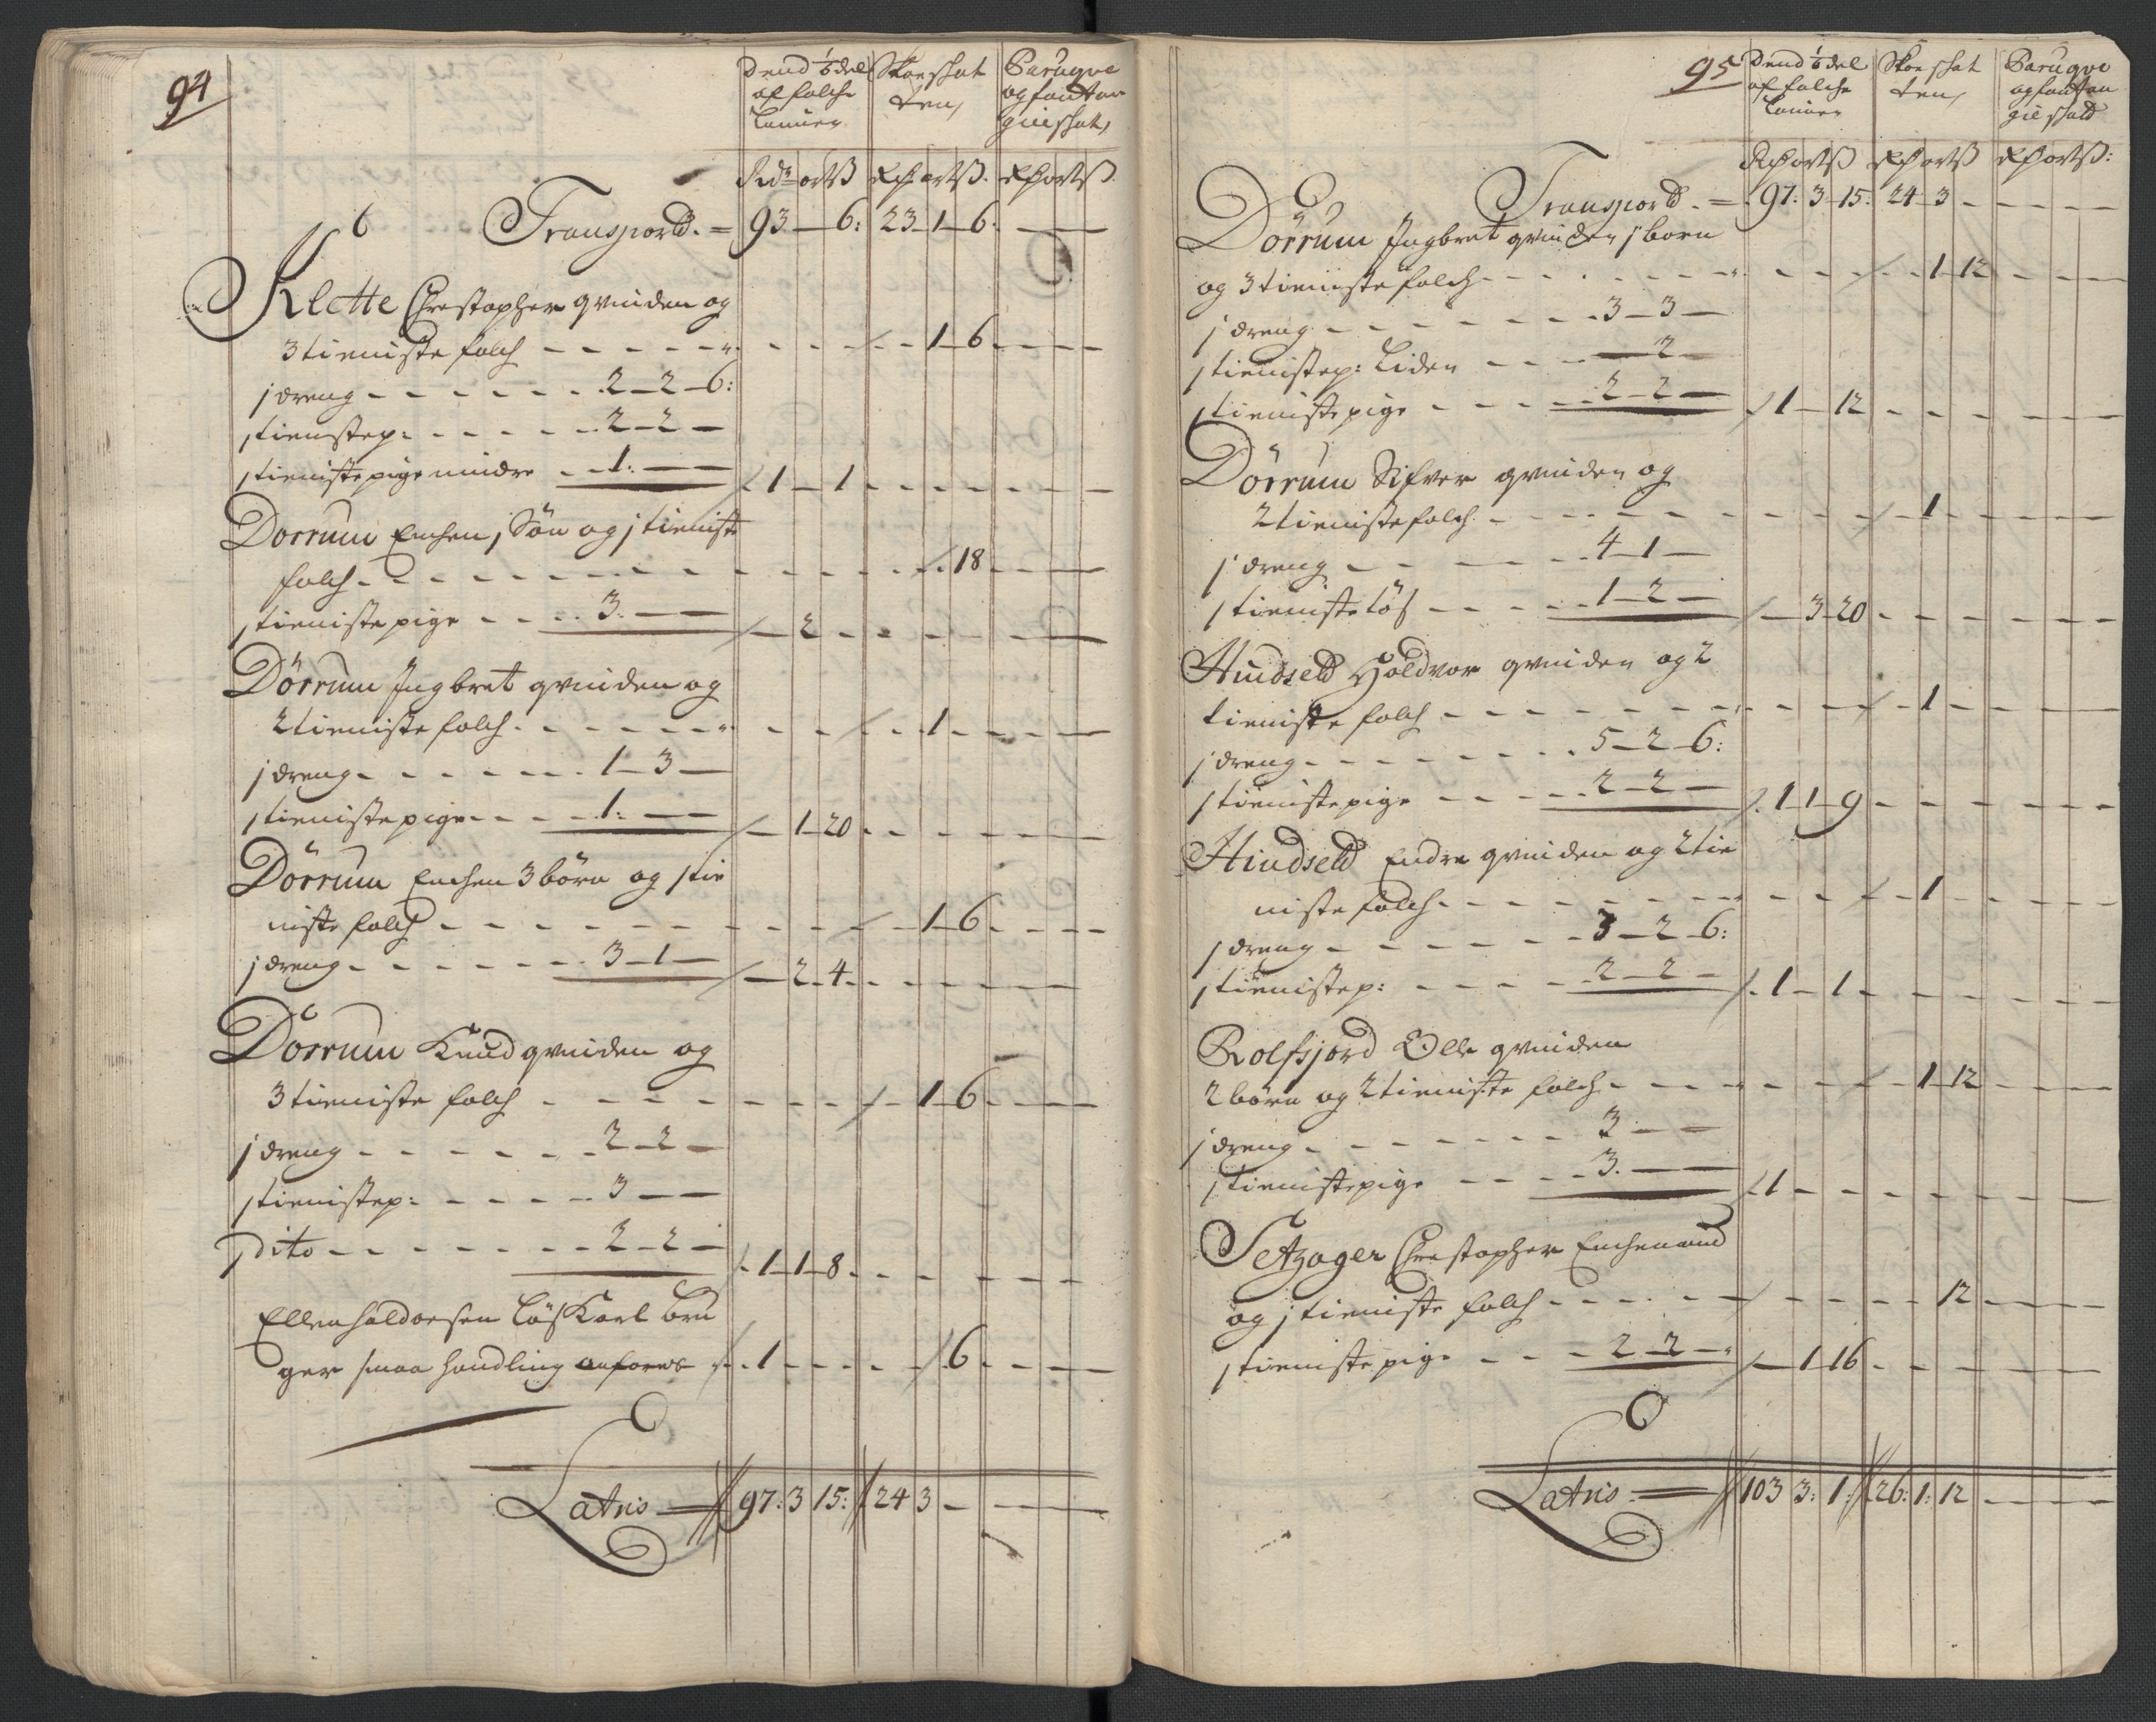 94
Dend 1/6 deel Skoe skat Paruqve
af folche ten, og fontan
Lønner gie skat,
Rdr ort ß Rdr ort ß Rdr ort ß
Transpord. = 93 — 6: 23 1 6. —
Klette Christopher qvinden og
3 tieniste folch - - - - - 1 6 - - -
j dreng - - - - - 2 — 2 — 6:
j tienistep: - - - - 2 — 2 —
j tieniste pige mindre - - 1: — — 1 — 1 - - - - -
Dorrum Enchen j Søn og j tieniste
folch - - - - - - - 18 - - -
j tieniste pige - - - 3. — — — 2 - - - -
Dörrum Ingbret qvinden og
2 tieniste folch - - - - - 1 - - -
j dreng - - - - - 1 — 3 —
j tieniste pige - - - 1: — — — 1 20 - - - -
Dörrum Enchen 3 börn og j tie
niste folch - - - - - - 1 6 - - -
j dreng - - - - - 3 — 1 — — 2 4 - - - -
Dörrum Knud qvinden og
3 tieniste folch - - - - - 1 6 - - -
j dreng - - - - - 2 — 2 —
j tienistep: - - - - 3 — —
j dito - - - - - - 2 — 2 — 1 1 8 - - - -
Ellen Haldorsen Løs Karl bru
ger smaa handling - 1 - - - 6 - - -
Latris = 97: 3 15: 24 3 — — —
95
Dend 1/6 deel Skoe skat Paruqve
af folche ten, og fontan
Lønner gie skatt
Rdr ort ß Rdr ort ß Rdr ort ß:
Transpord. = 97: 3 15: 24 3 - - - -
Dörrum Ingbret qvinden j born
og 3 tieniste folch - - - - - 1 12 - - -
j dreng - - - - - 3 — 3 —
j tienistep: Liden - - - — 2 —
j tieniste pige - - - 2 — 2 — 1 — 12 - - - -
Dörrum Sifver qvinden og
2 tieniste folch - - - - - 1 - - -
j dreng - - - - - 4 — 1 —
j tieniste tös - - - 1 — 2 — — 3 20 - - - -
Hindseld Holdvor qvinden og 2
tieniste folch - - - - - 1 - - -
j dreng - - - - - 5 — 2 — 6:
j tieniste pige - - - 2 — 2 — 1 1 9 - - - -
Hindseld Endre qvinden og 2 tie
niste folch - - - - - 1 - - -
j dreng - - - - - 3 — 2 — 6:
j tienistep: - - - - 2 — 2 — 1 — 1 - - - -
Rolfsjord Olle qvinden
2 börn og 2 tieniste folch - - - - 1 12 - - -
j dreng - - - - - 3 — —
j tieniste pige - - - 3. — — 1 - - - - -
Setzager Christopher Enchemand
og j tieniste folch - - - - - 12 - - -
j tieniste pige - - - 2 — 2 — — 1 16 - - - -
Latris = 103 3: 1: 26: 1: 12 - - - -